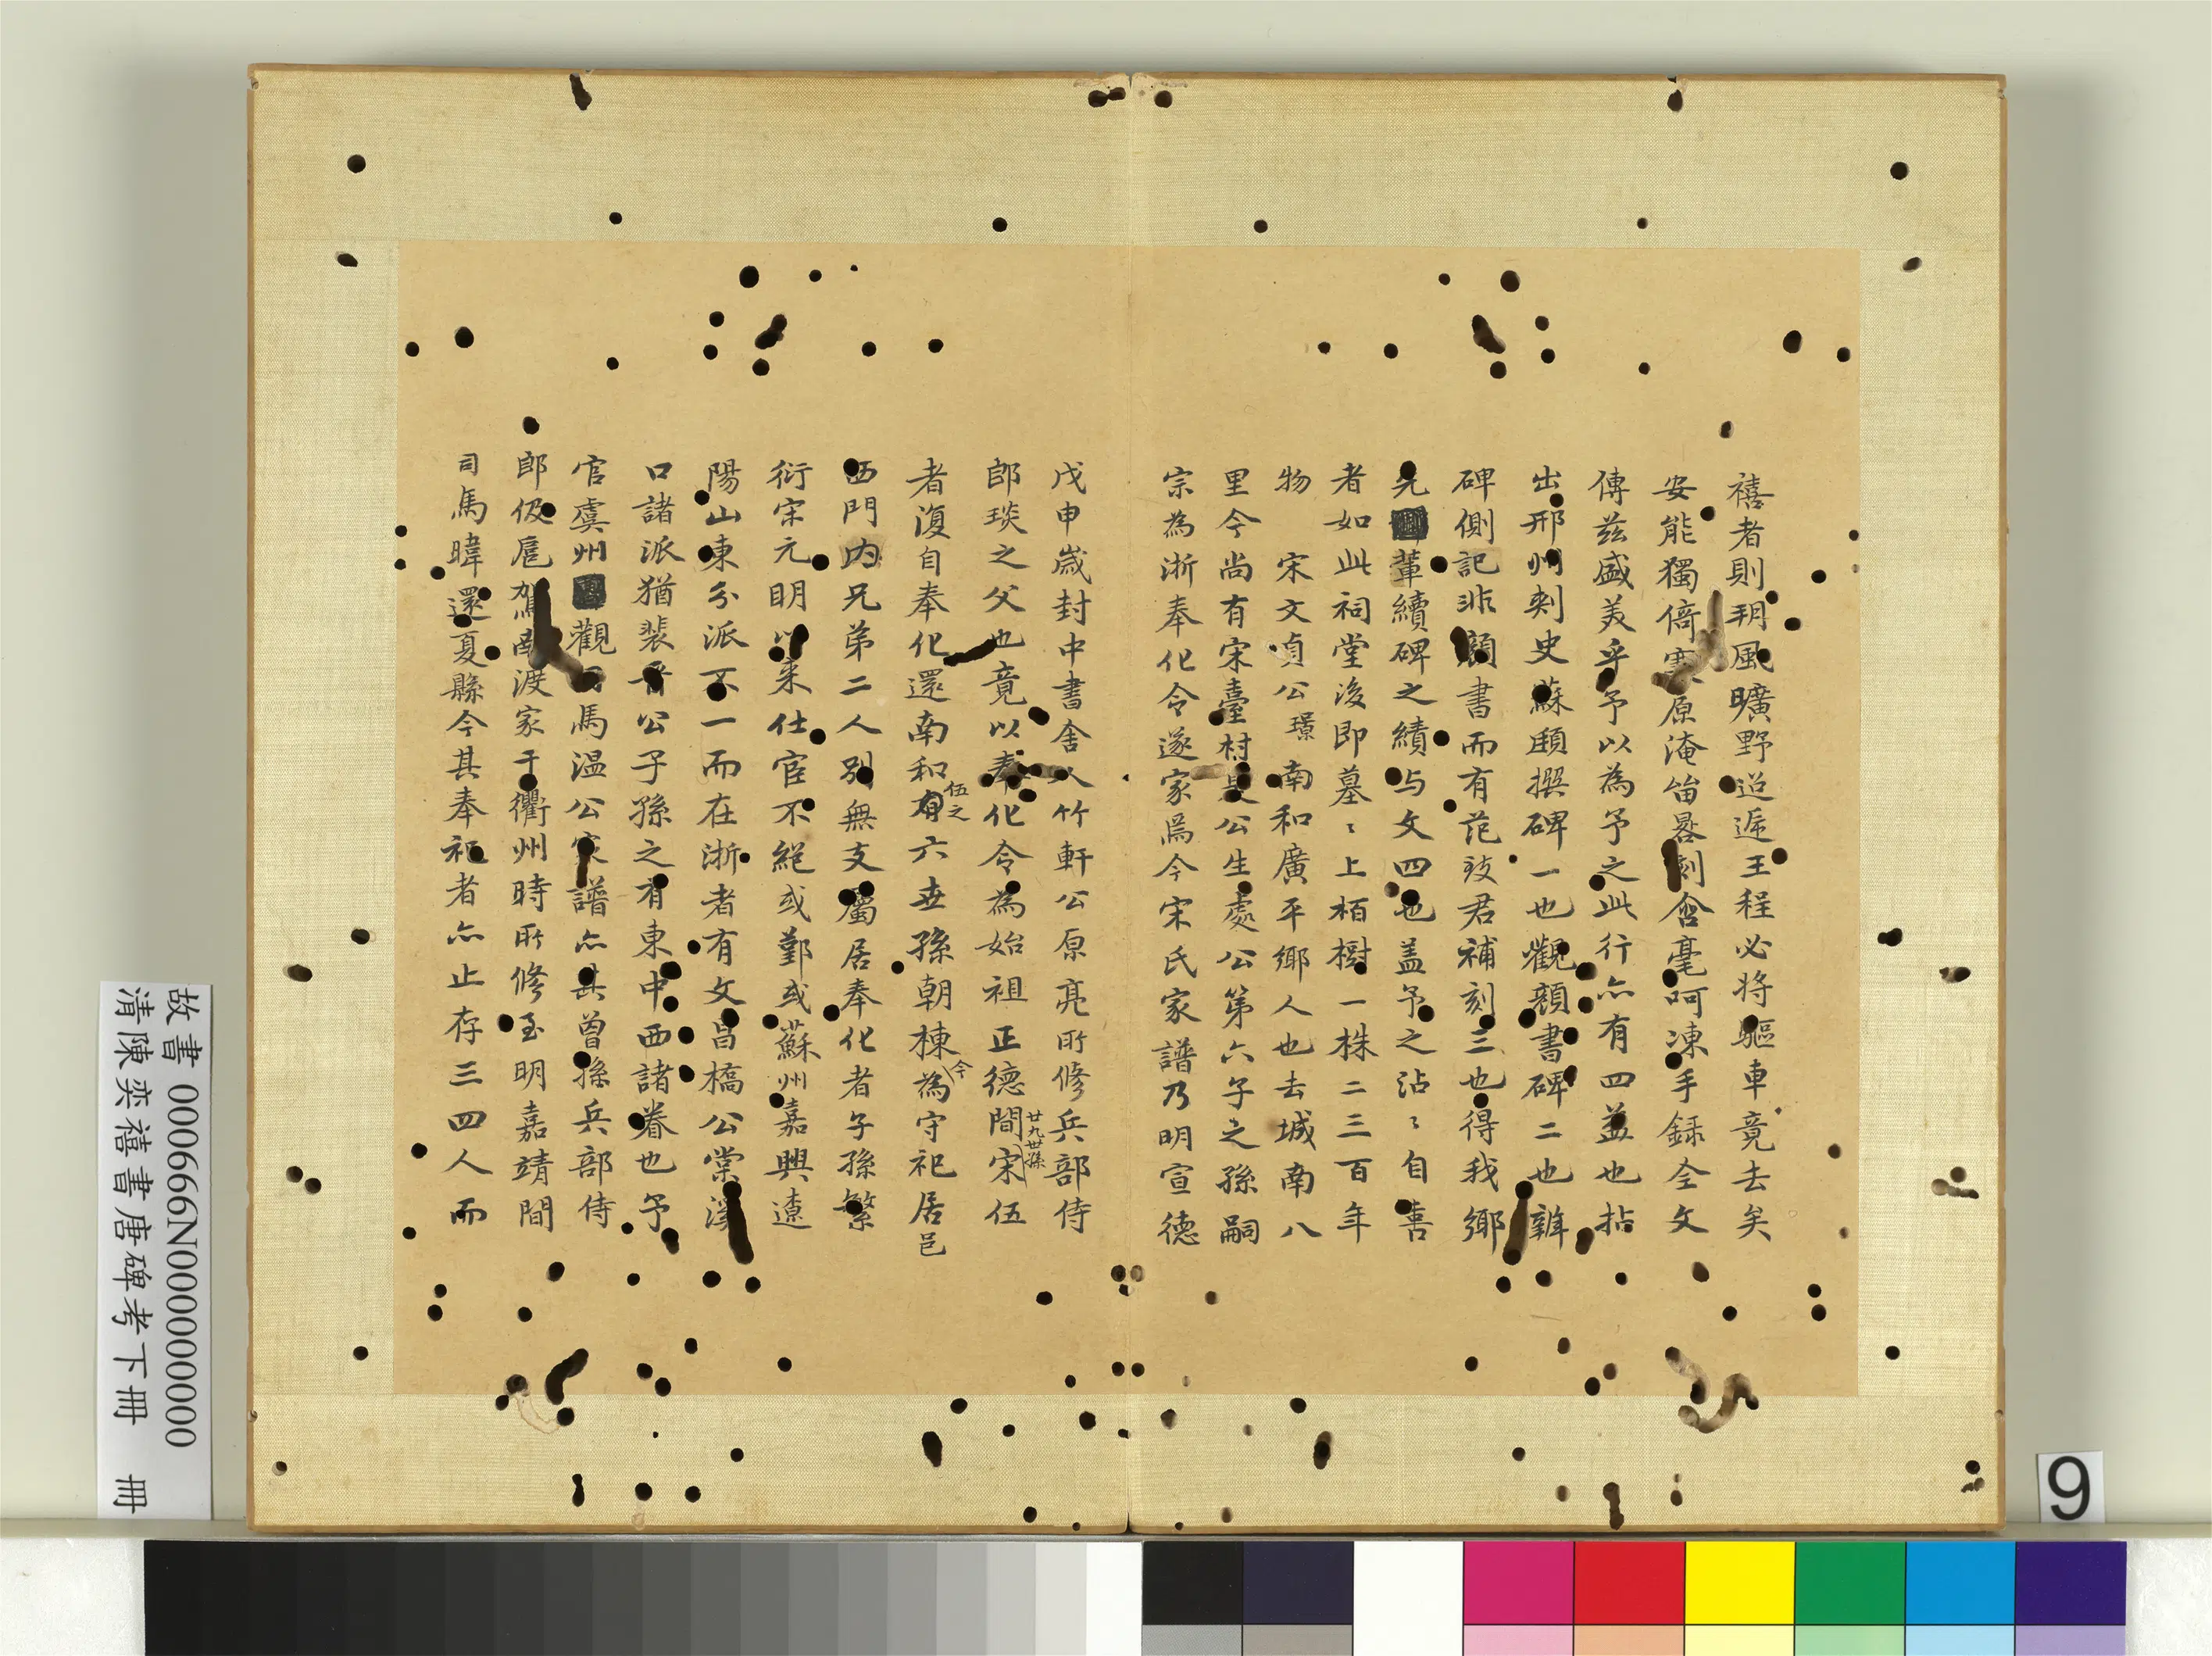 禧者則玥風曠野迢遞王程必將驅車竟去矣
安能獨倚寒原淹留晷刻含毫呵凍手録全文
傳兹盛美乎予以為予之此行亦有四益也拈
出邢州刺史蘇頲撰碑一也觀顔書碑二也辨
碑側記非顔書而有范致君補刻三也得我鄉
先輩續碑之績与文四也盖予之沾〻自喜
者如此祠堂後即墓〻上栢樹一株二三百年
物　宋文貞公璟南和廣平鄉人也去城南八
里今尚有宋臺村是公生處公第六子之孫嗣
宗為浙奉化令遂家焉今宋氏家譜乃明宣德
戊申歲封中書舍人竹軒公原亮所修兵部侍
郎琰之父也竟以奉化令為始祖正德間廿九世孫宋伍
者復自奉化還南和伍之有六世孫朝棟為今守祀居邑
西門内兄弟二人別無支屬居奉化者子孫繁
衍宋元明以来仕宦不絕或鄞或蘇州嘉興遼
陽山東分派不一而在浙者有文昌橋公棠溪
口諸派猶裴晋公子孫之有東中西諸眷也予
官虞州觀司馬温公家譜亦其曾孫兵部侍
郎伋扈駕南渡家于衢州時所修至明嘉靖間
司馬暐還夏縣今其奉祀者亦止存三四人而
故書 000666N000000000
清陳奕禧書唐碑考下冊　冊
9